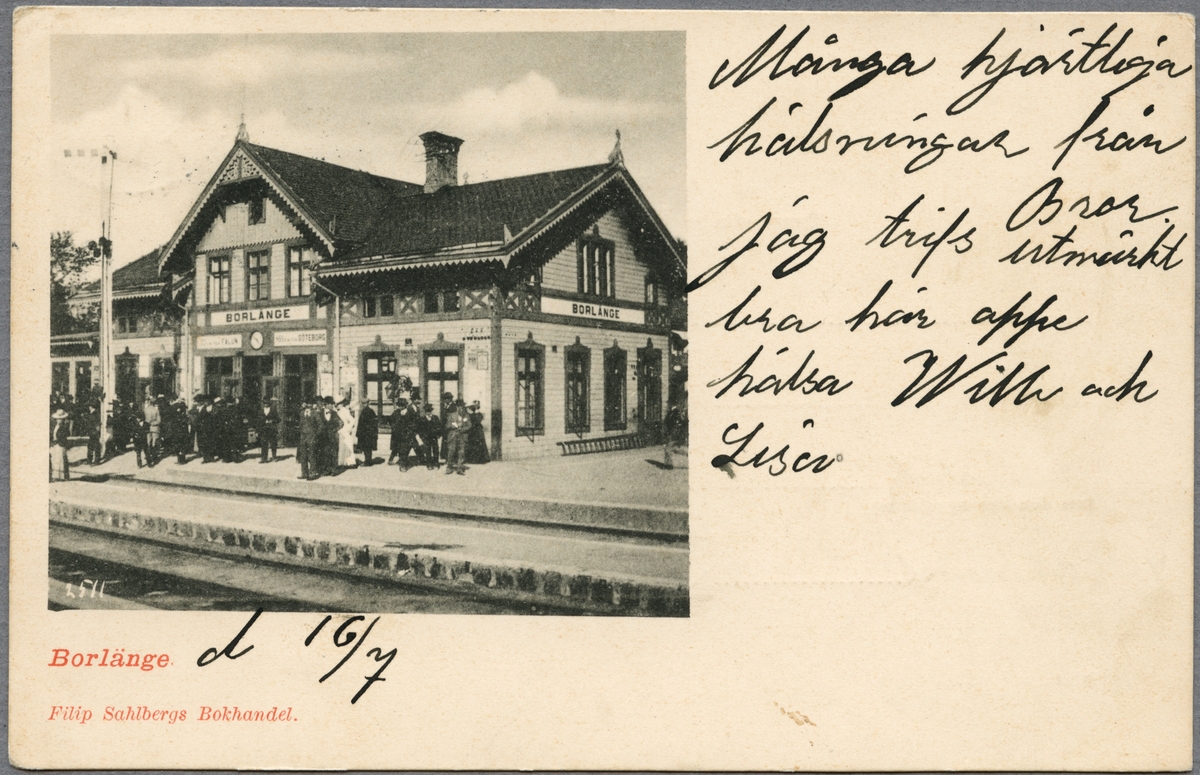 Många hjärtliga
hälsningar från
Bror.
jag trifs utmärkt
bra här uppe
hälsa Wille och
Lisa
BORLÄNGE
BORLÄNGE
FALUN
GÖTEBORG
2511
Borlänge.
d 16/7
Filip Sahlbergs Bokhandel.